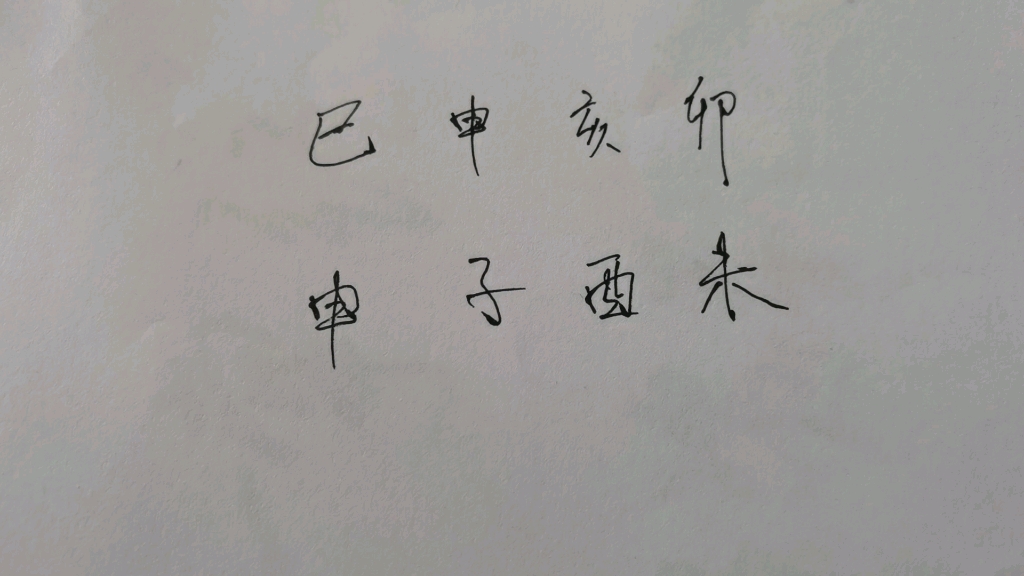 巳 申 亥 卯
申 子 酉 未